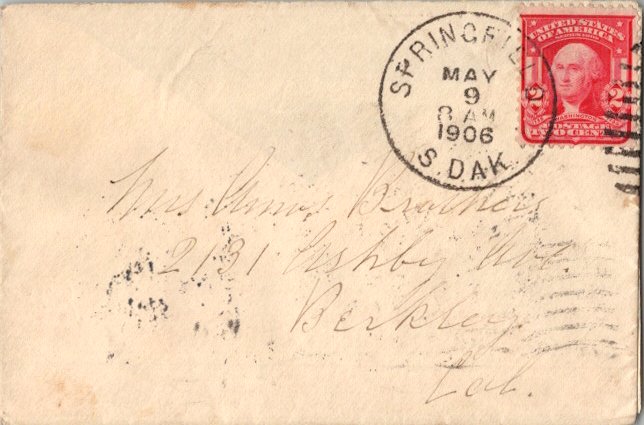 SPRINGFIELD
MAY
9
8 AM
1906
S. DAK
UNITED STATES
OF AMERICA
2 WASHINGTON 2
POSTAGE
TWO CENTS
Mrs Amos Brothers
2131 Ashby Ave.
Berkley
Cal.